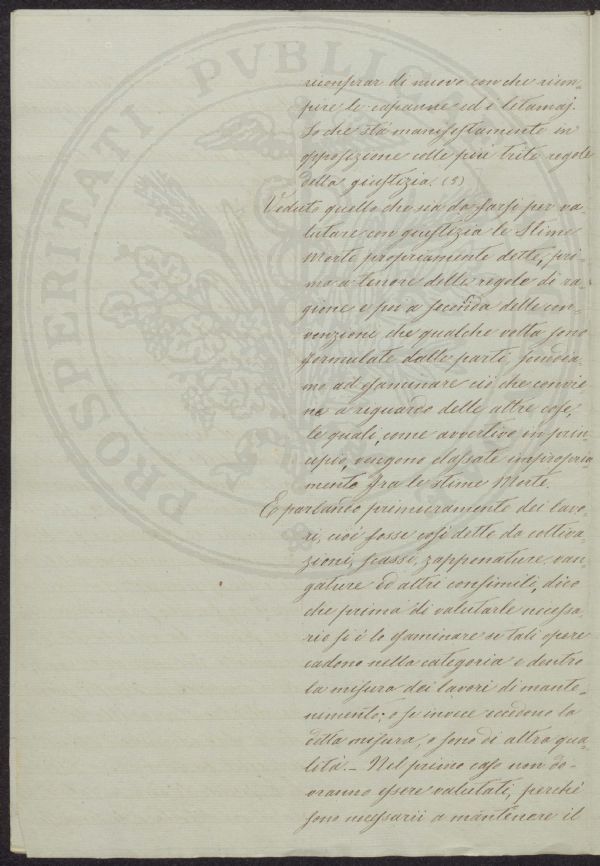 PROSPERITATI PUBLICAE
ricomprar di nuovo con che riem-
pire le capanne ed i letamaj.
Lo che stà manifestamente in
opposizione colle più trite regole
della giustizia. (3)
Veduto quello che sia da farsi per va-
lutare con giustizia le Stime
Morte propriamente dette, pri-
ma a tenore delle regole di ra-
gione e poi a seconda delle con-
venzioni che qualche volta sono
formulate dalle parti, scendia-
mo ad esaminare ciò che convie-
ne a riguardo delle altre cose,
le quali, come avvertivo in prin-
cipio, vengono classate impropria-
mente fra le stime Morte.
E parlando primieramente dei lavo-
ri, cioè fosse così dette da coltiva-
zioni, scassi, zapponature, van-
gature ed altri consimili, dico
che prima di valutarle necessa-
rio si è lo esaminare se tali opere
cadono nella categoria e dentro
la misura dei lavori di mante-
nimento; o se invece eccedono la
detta misura, o sono di altra qua-
lità. – Nel primo caso non do-
vranno essere valutati, perchè
sono necessarii a mantenere il